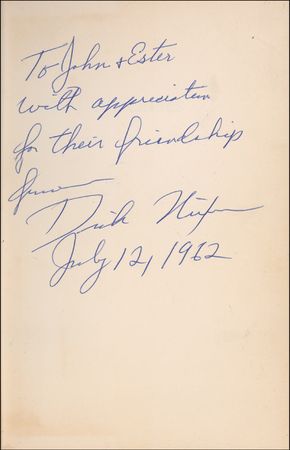 To John & Ester
with appreciation
for their friendship
from
Dick Nixon
July 12, 1962